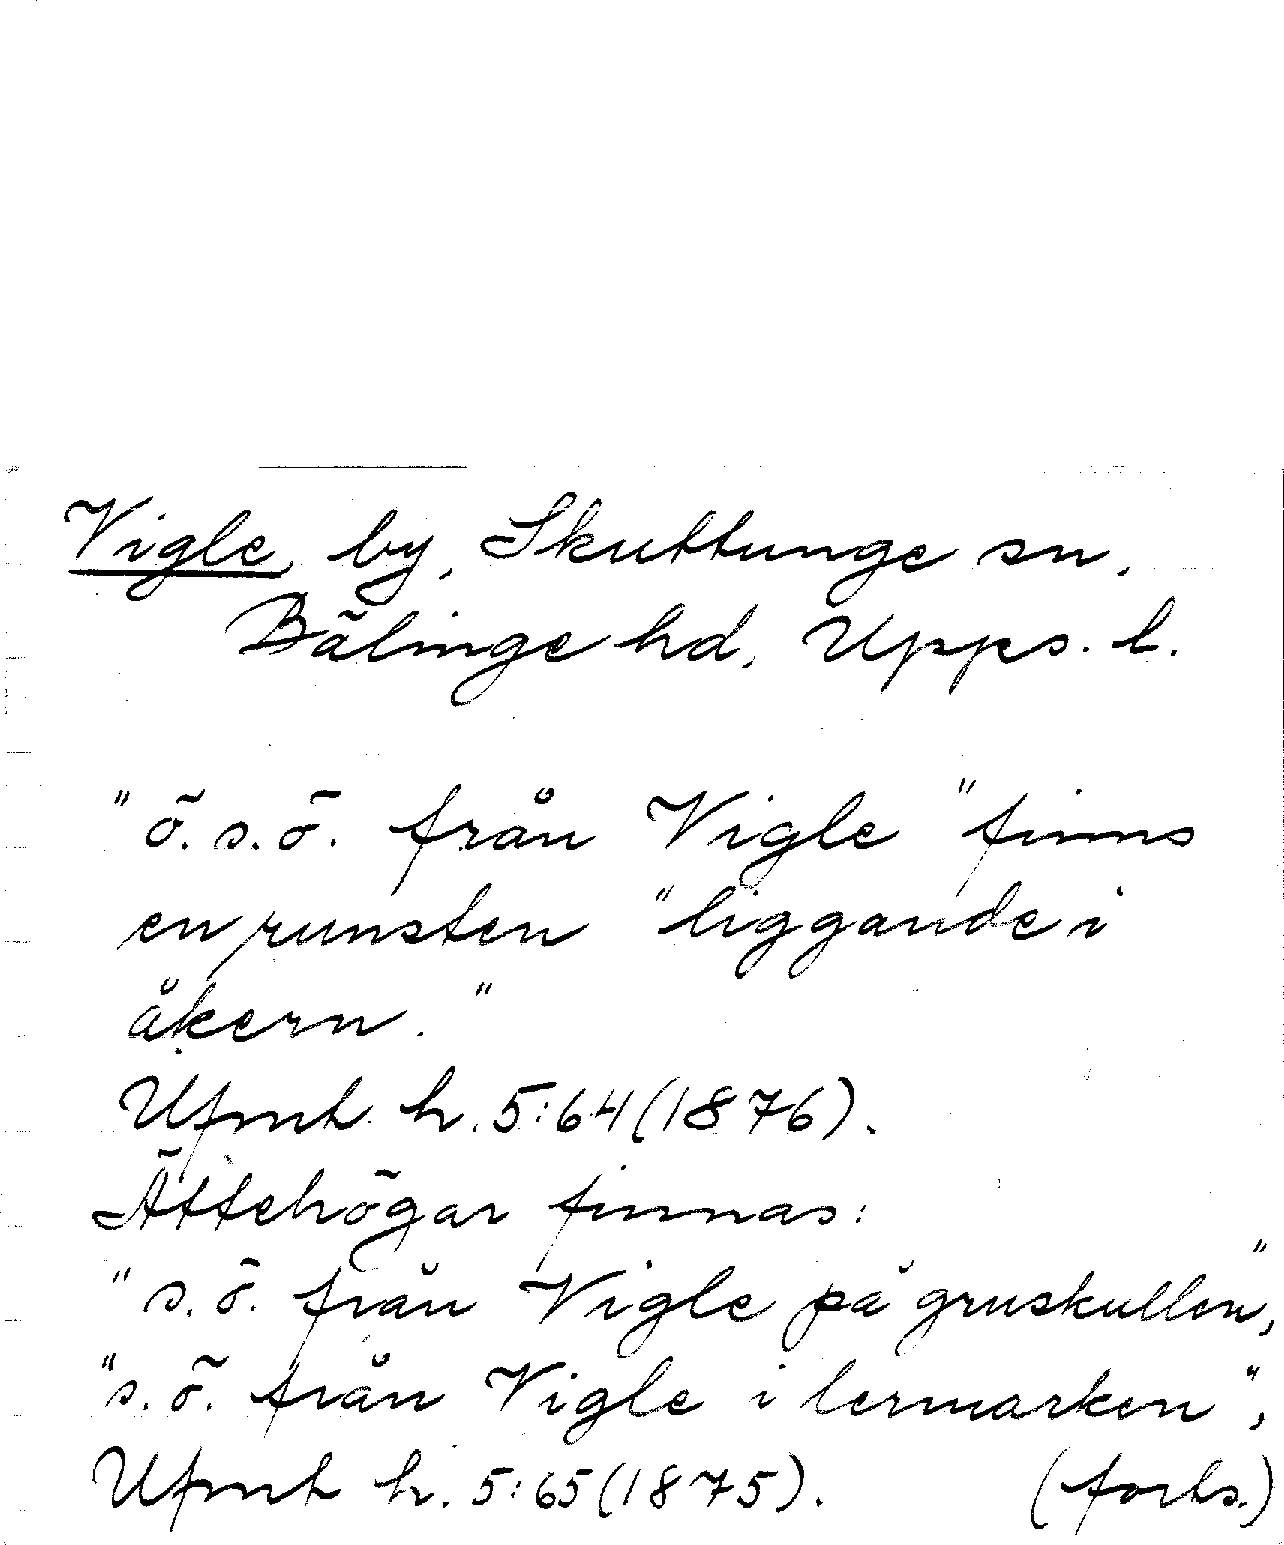 Vigle by, Skuttunge sn,
Bälinge hd, Upps. l.
"ö.s.ö. från Vigle" finns
en runsten "liggande i
åkern."
Ufmt h. 5:64 (1876).
Ättehögar finnas:
"s.ö. från Vigle på gruskullen",
"s.ö. från Vigle i lermarken",
Ufmt h. 5:65 (1875). (forts.)